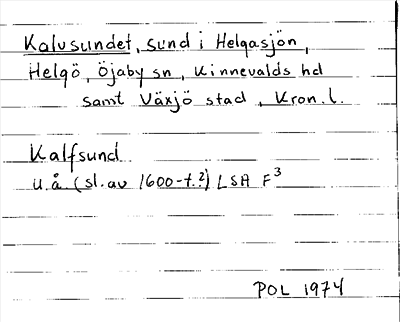 Kalvsundet, sund i Helgasjön,
Helgö, Öjaby sn, Kinnevalds hd
samt Växjö stad, Kron. l.
Kalfsund
u.å. (sl. av 1600-t.?) LSA F3
POL 1974